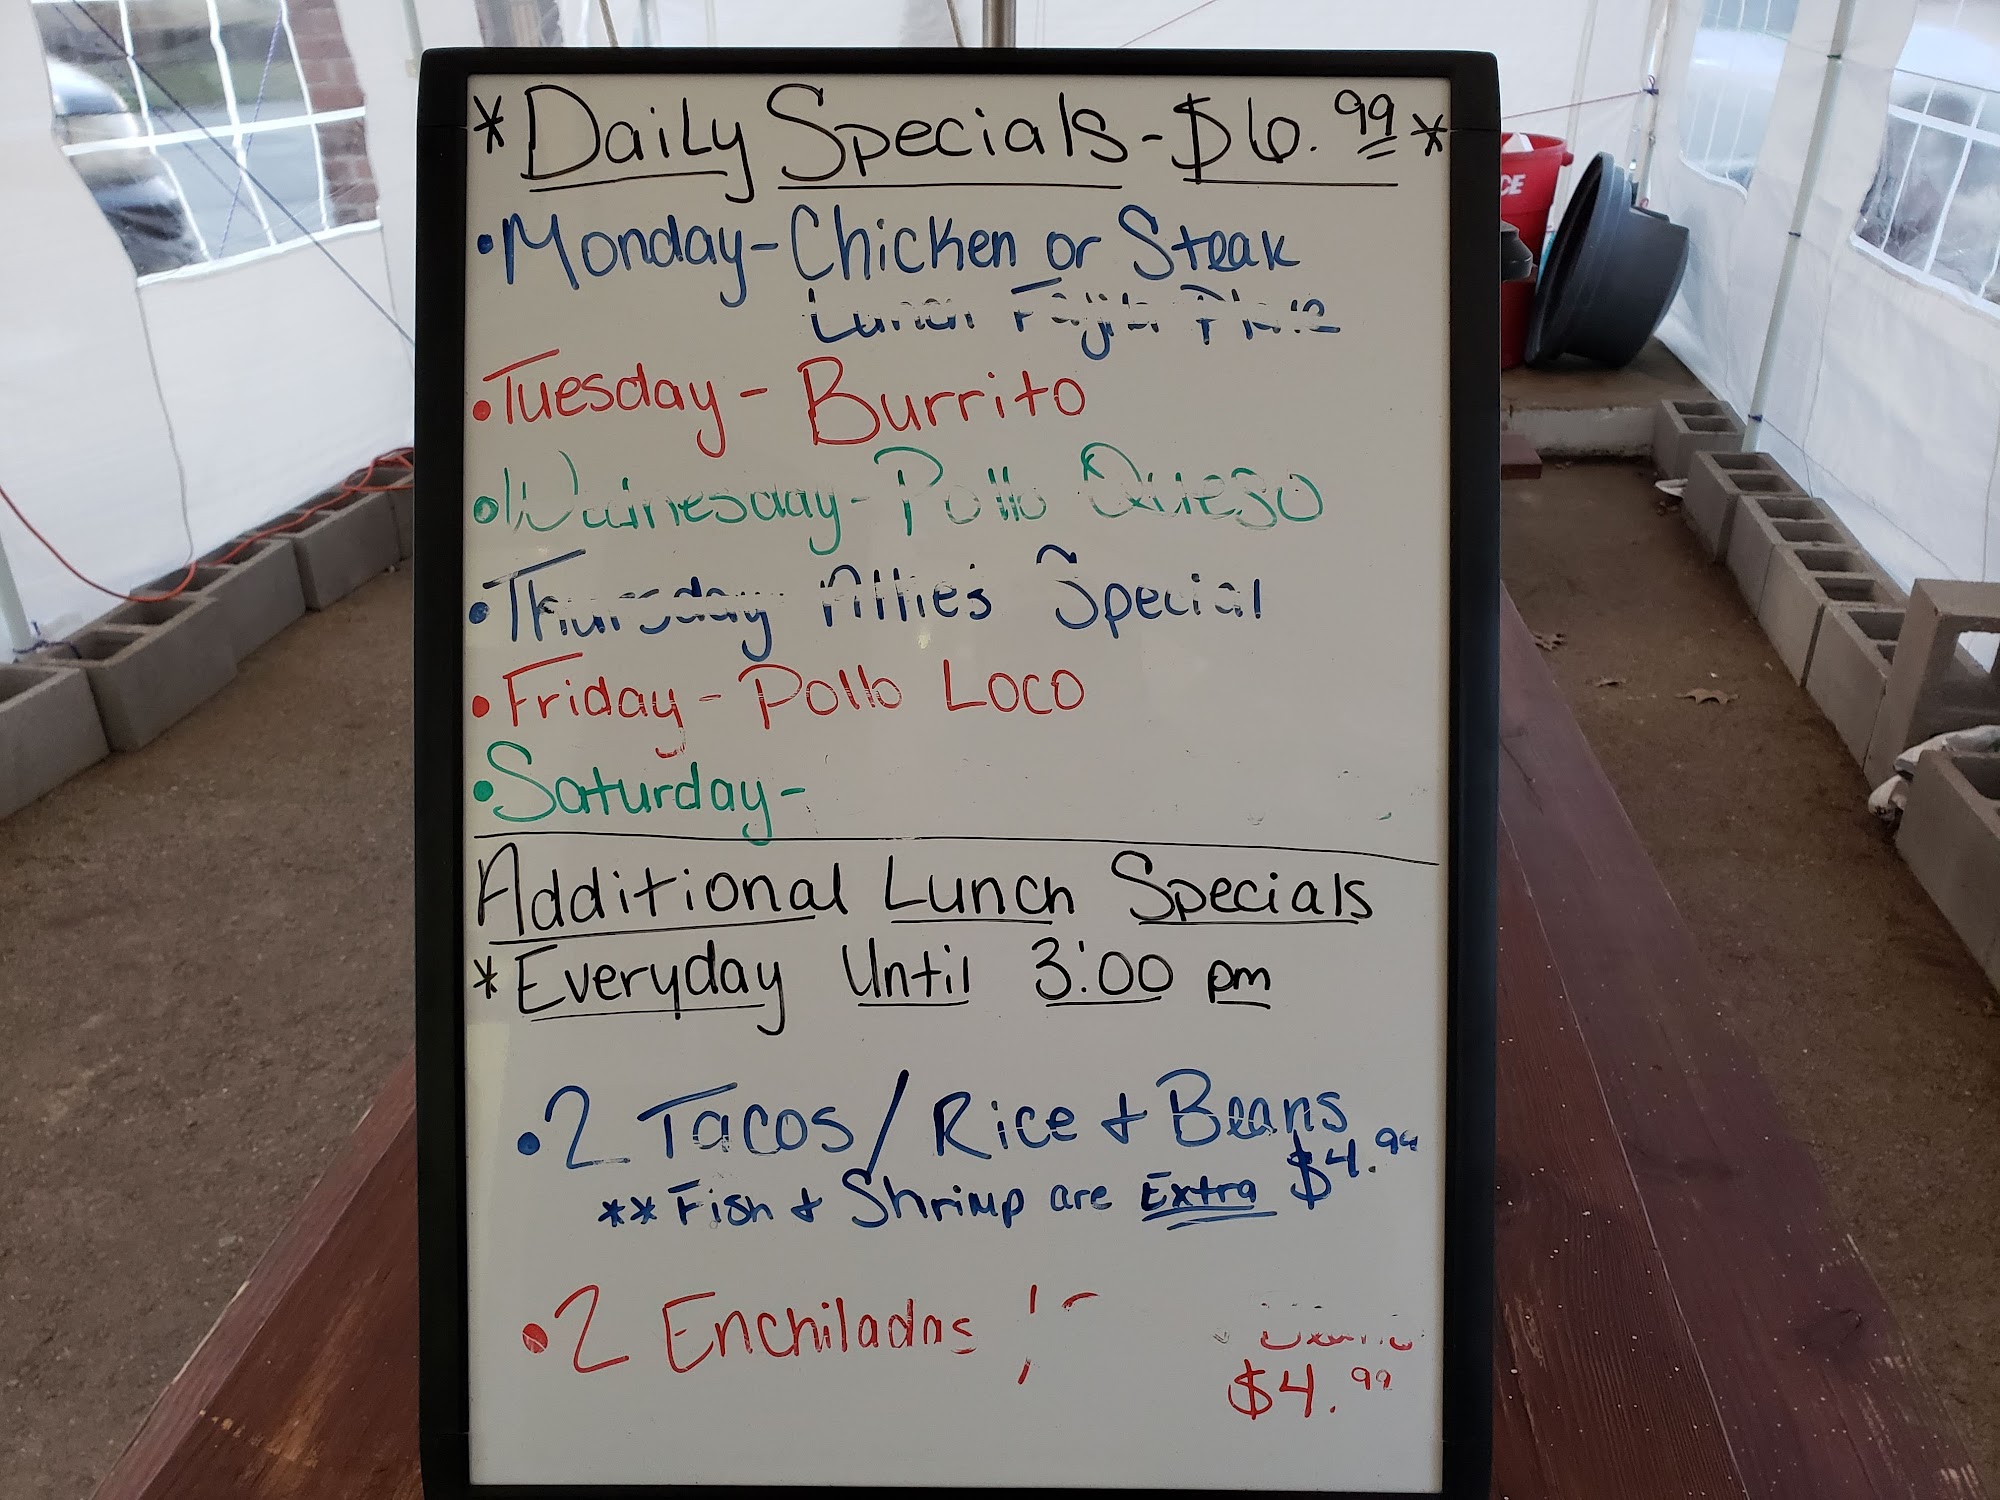 *Daily Specials - $6.99*
•Monday - Chicken or Steak
Lunch Fajita Plate
•Tuesday - Burrito
•Wednesday - Pollo Queso
•Thursday Allie's Special
•Friday - Pollo Loco
•Saturday -
Additional Lunch Specials
*Everyday Until 3:00 pm
•2 Tacos/Rice + Beans
$4.99
**Fish + Shrimp are Extra
•2 Enchiladas /
$4.99